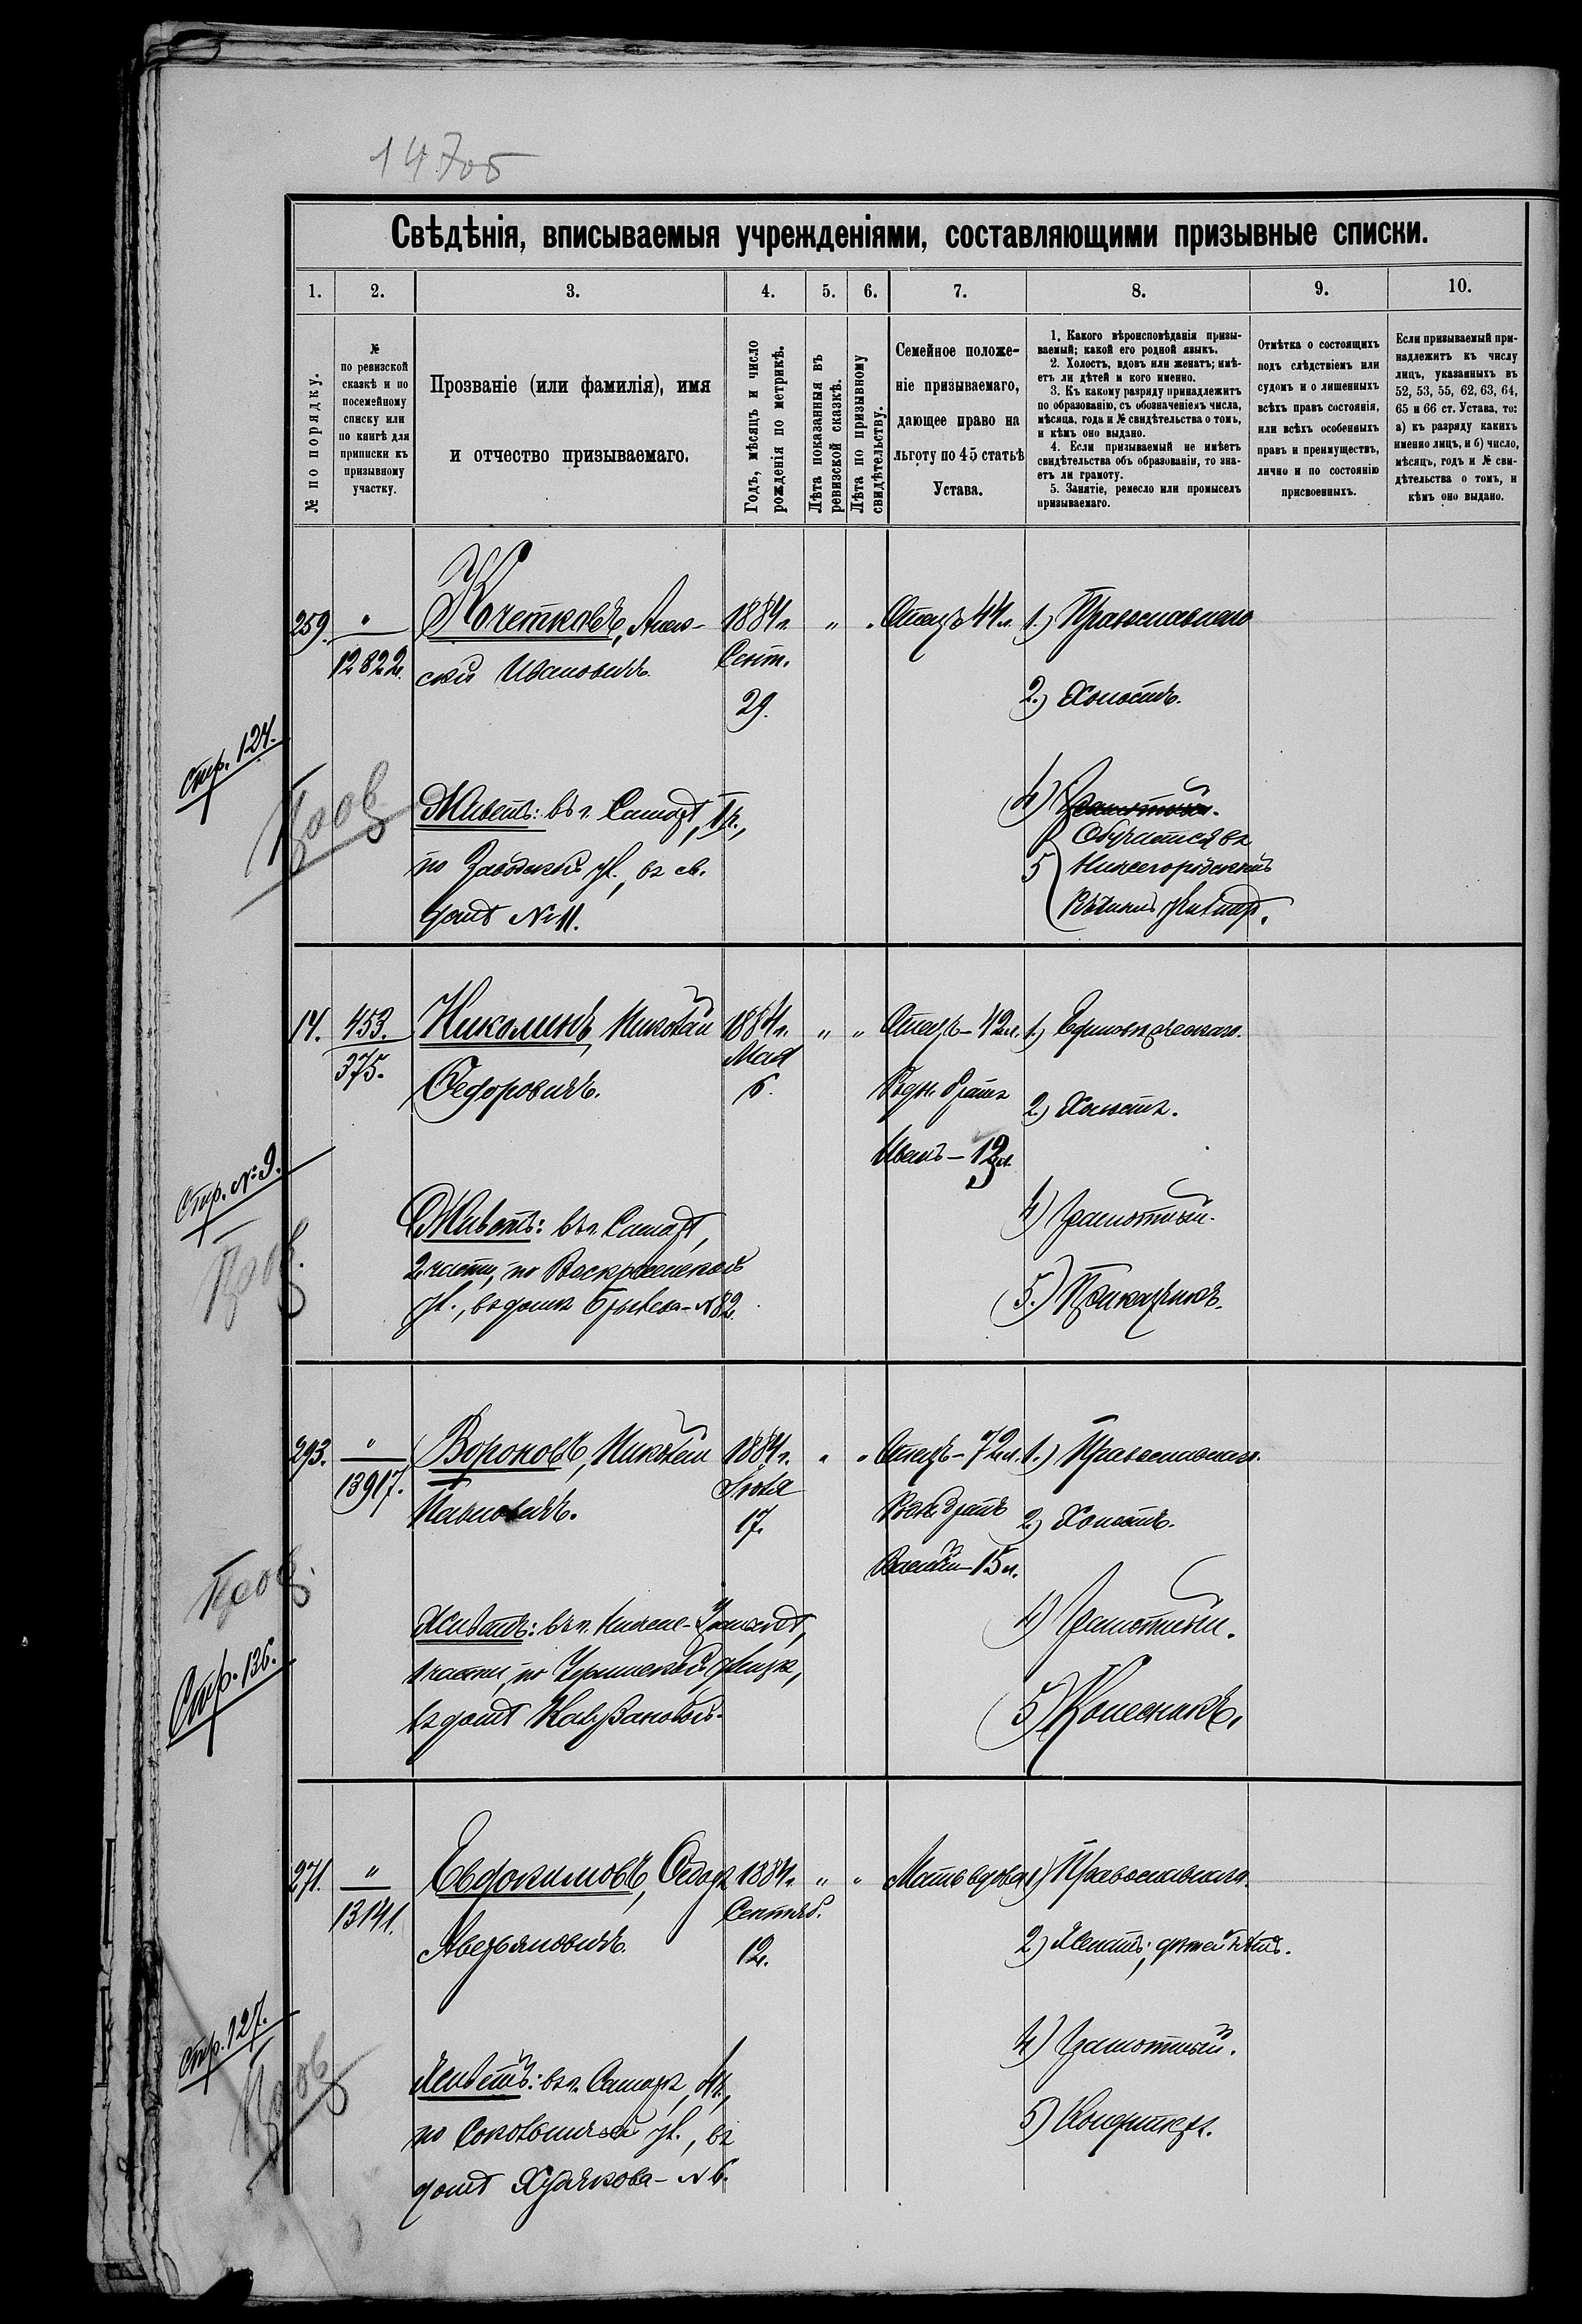 147об
Свѣдѣнія, вписываемыя учрежденіями, составляющими призывные списки.
1.
2.
3.
4.
5.
6.
7.
8.
9.
10.
№ по порядку.
№
по ревизской
сказкѣ и по
посемейному
списку или
по книгѣ для
приписки къ
призывному
участку.
Прозваніе (или фамилія), имя
и отчество призываемаго.
Годъ, мѣсяцъ и число
рожденія по метрикѣ.
Лѣта показанныя въ
ревизской сказкѣ.
Лѣта по призывному
свидѣтельству.
Семейное положе-
ніе призываемаго,
дающее право на
льготу по 45 статьѣ
Устава.
1. Какого вѣроисповѣданія призы-
ваемый; какой его родной языкъ.
2. Холостъ, вдовъ или женатъ; имѣ-
етъ ли дѣтей и кого именно.
3. Къ какому разряду принадлежитъ
по образованію, съ обозначеніемъ числа,
мѣсяца, года и № свидѣтельства о томъ,
и кѣмъ оно выдано.
4. Если призываемый не имѣетъ
свидѣтельства объ образованіи, то зна-
етъ ли грамоту.
5. Занятіе, ремесло или промыселъ
призываемаго.
Отмѣтка о состоящихъ
подъ слѣдствіемъ или
судомъ и о лишенныхъ
всѣхъ правъ состоянія,
или всѣхъ особенныхъ
правъ и преимуществъ,
лично и по состоянію
присвоенныхъ.
Если призываемый при-
надлежитъ къ числу
лицъ, указанныхъ въ
52, 53, 55, 62, 63, 64,
65 и 66 ст. Устава, то:
а) къ разряду какихъ
именно лицъ, и б) число,
мѣсяцъ, годъ и № сви-
дѣтельства о томъ, и
кѣмъ оно выдано.
259.
"
12822.
Кочетковъ, Алек-
сѣй Ивановичъ.
1884 г.
Сент.
29.
"
"
Отецъ 44 л.
1.) Православнаго
2.) Холостъ.
Стр. 124.
Живетъ: въ г. Самарѣ, 1 ч.,
по Заводской ул., въ св.
домѣ № 11.
4) Грамотный.
Обучается въ
5 Нижегородскомъ
14.
453.
375.
Николинъ, Николай
Ѳедоровичъ.
1884 г.
Мая
6.
"
"
Отецъ - 42 л.
Родн. братъ
Иванъ - 13 л.
1.) Единовѣрческаго.
2.) Холостъ.
Стр. № 9.
Живетъ: въ г. Самарѣ,
2 части, по Воскресенской
ул., въ домѣ - № 82.
4) Грамотный.
5.) Приказчикъ.
293.
"
13917.
Вороновъ, Николай
Павловичъ.
1884 г.
Іюля
17.
"
"
Отецъ - 72 л.
братъ
Василій - 15 л.
1.) Православнаго.
2.) Холостъ.
Стр. 136.
Живетъ: въ г.
1 части, по улицѣ,
въ домѣ
4) Грамотный.
5) Колесникъ.
271.
"
13141.
Евдокимовъ, Ѳедоръ
Аверьяновичъ.
1884 г.
Сентяб.
12.
"
"
Мать вдова
1) Православнаго.
2) Женатъ; дѣтей нѣтъ.
Стр. 127.
Живетъ: въ г. Самарѣ, 4 ч.,
по Соколовской ул., въ
домѣ Худякова - № 6.
4) Грамотный.
5) Кондитеръ.